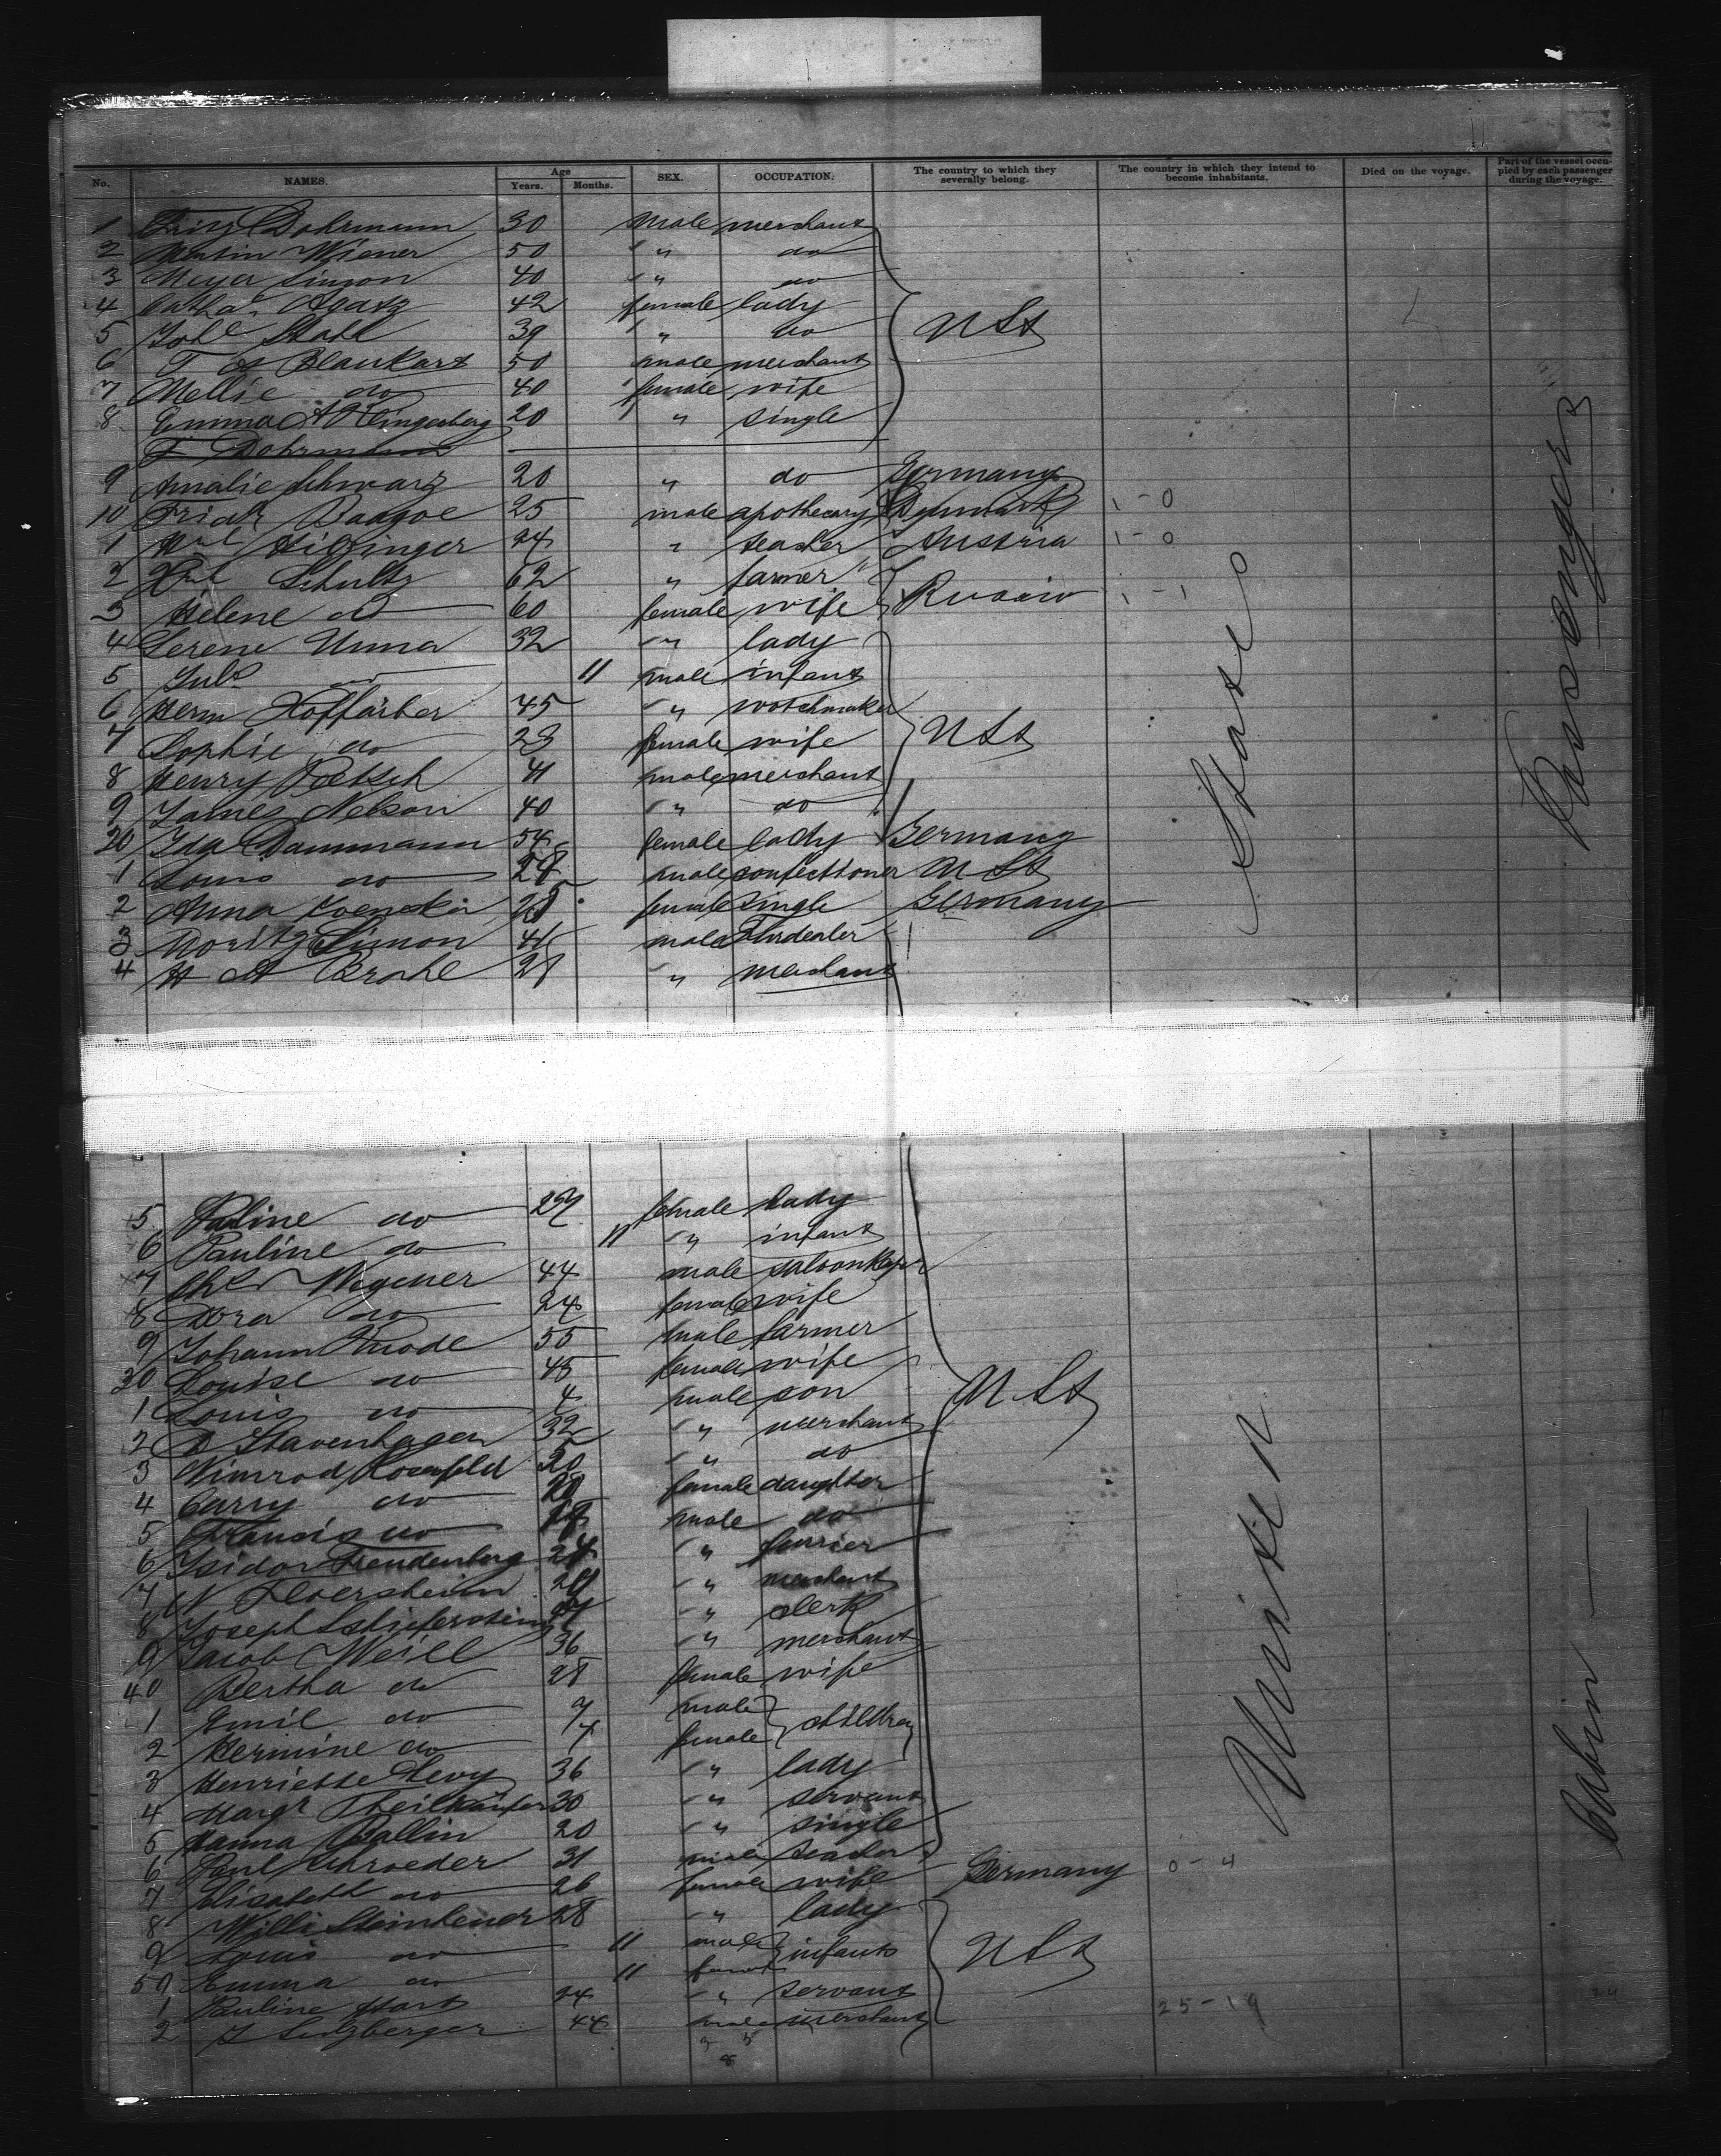 No. NAMES. Age Years. Months. SEX. OCCUPATION. The country to which they severally belong. The country in which they intend to become inhabitants. Died on the voyage. Part of the vessel occupied by each passenger during the voyage.
1 Fritz Dohrmann 30 male merchant
2 Martin Wiener 50 " do
3 Meyer Simon 40 " do
4 Catha. Agatz 42 female lady
5 Joh Stahl 39 " do U St
6 T Blankart 50 male merchant
7 Mellie do 40 female wife
8 Emma Klingenberg 20 " single
F Dohrmann
9 Amalie Schwarz 20 " do Germany
10 Baagoe 25 male apothecary Denmark 1-0
1 24 " teacher Austria 1-0
2 Schultz 62 " farmer
3 Helene do 60 female wife Russia 1-1
4 Serene Unna 32 " lady
5 Jul do 11 male infant
6 Herm Hoffärber 45 " watchmaker
7 Sophie do 23 female wife U St
8 Henry Poetsch 41 male merchant
9 James Nelson 40 " do
20 Ida Dammann 54 female lady Germany
1 Louis do confectioner U St
2 Anna female single Germany
3 Moritz Simon male
4 H A 28 " merchant
States
Passenger
5 Pauline do female lady
6 Pauline do 11 " infant
7 Wegener 44 male saloonkeeper
8 Dora do 24 female wife
9 Johann Knode 55 male farmer
30 Louise do 45 female wife
1 Louis do 4 male son U St
2 D Stavenhagen 32 " merchant
3 Nimrod Rosenfeld 50 " do
4 Carry do female daughter
5 Francis do male do
6 Isidor Freudenberg 24 " furrier
7 N Floersheim " merchant
8 Joseph " clerk
9 Jacob Weill 36 " merchant
40 Bertha do 28 female wife
1 Emil do 7 male
2 Hermine do 4 female children
3 Henriette Levy 36 " lady
4 Margr Theilkäufer 30 " servant
5 Hanna Ballin 20 " single
6 Paul Schroeder 31 male teacher
7 Elisabeth do 26 female wife Germany 0-4
8 Willi 28 " lady
9 Louis do 11 male
50 Emma do 11 female infants U St
1 Pauline Hart 24 " servant
2 J Sulzberger 44 male merchant 25-19
United
Cabin